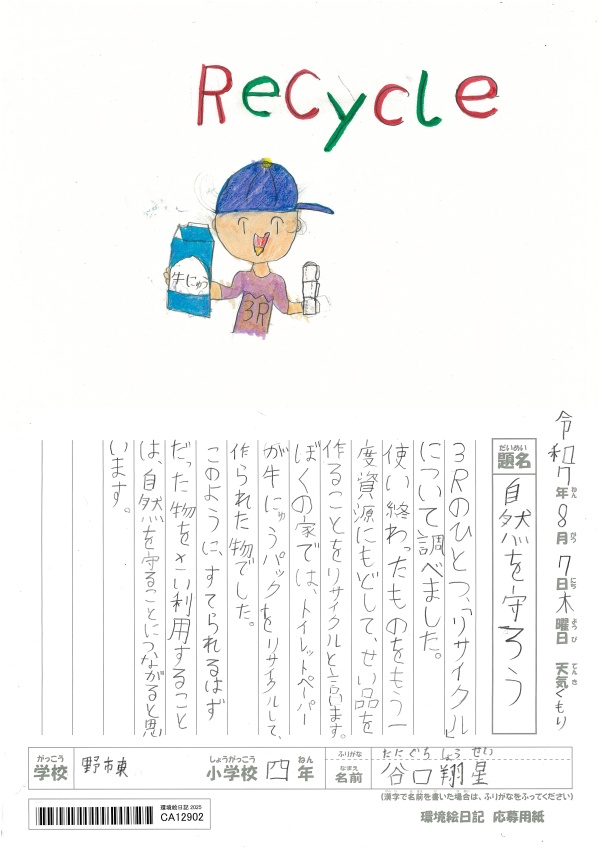 Recycle
牛にゅう
3R
令和7年8月7日木曜日 天気くもり
ねん がつ にち ようび てんき
だいめい
題名
自然を守ろう
3Rのひとつ、「リサイクル」
について調べました。
使い終わったものをもう一
度資源にもどして、せい品を
作ることをリサイクルと言います。
ぼくの家では、トイレットペーパー
が牛にゅうパックをリサイクルして、
作られた物でした。
このように、すてられるはず
だった物をさい利用すること
は、自然を守ることにつながると思
います。
がっこう
学校
野市東
しょうがっこう ねん
小学校 四年
ふりがな
たにぐち しょうせい
なまえ
名前
谷口翔星
(漢字で名前を書いた場合は、ふりがなをふってください)
環境絵日記 2025
CA12902
環境絵日記 応募用紙